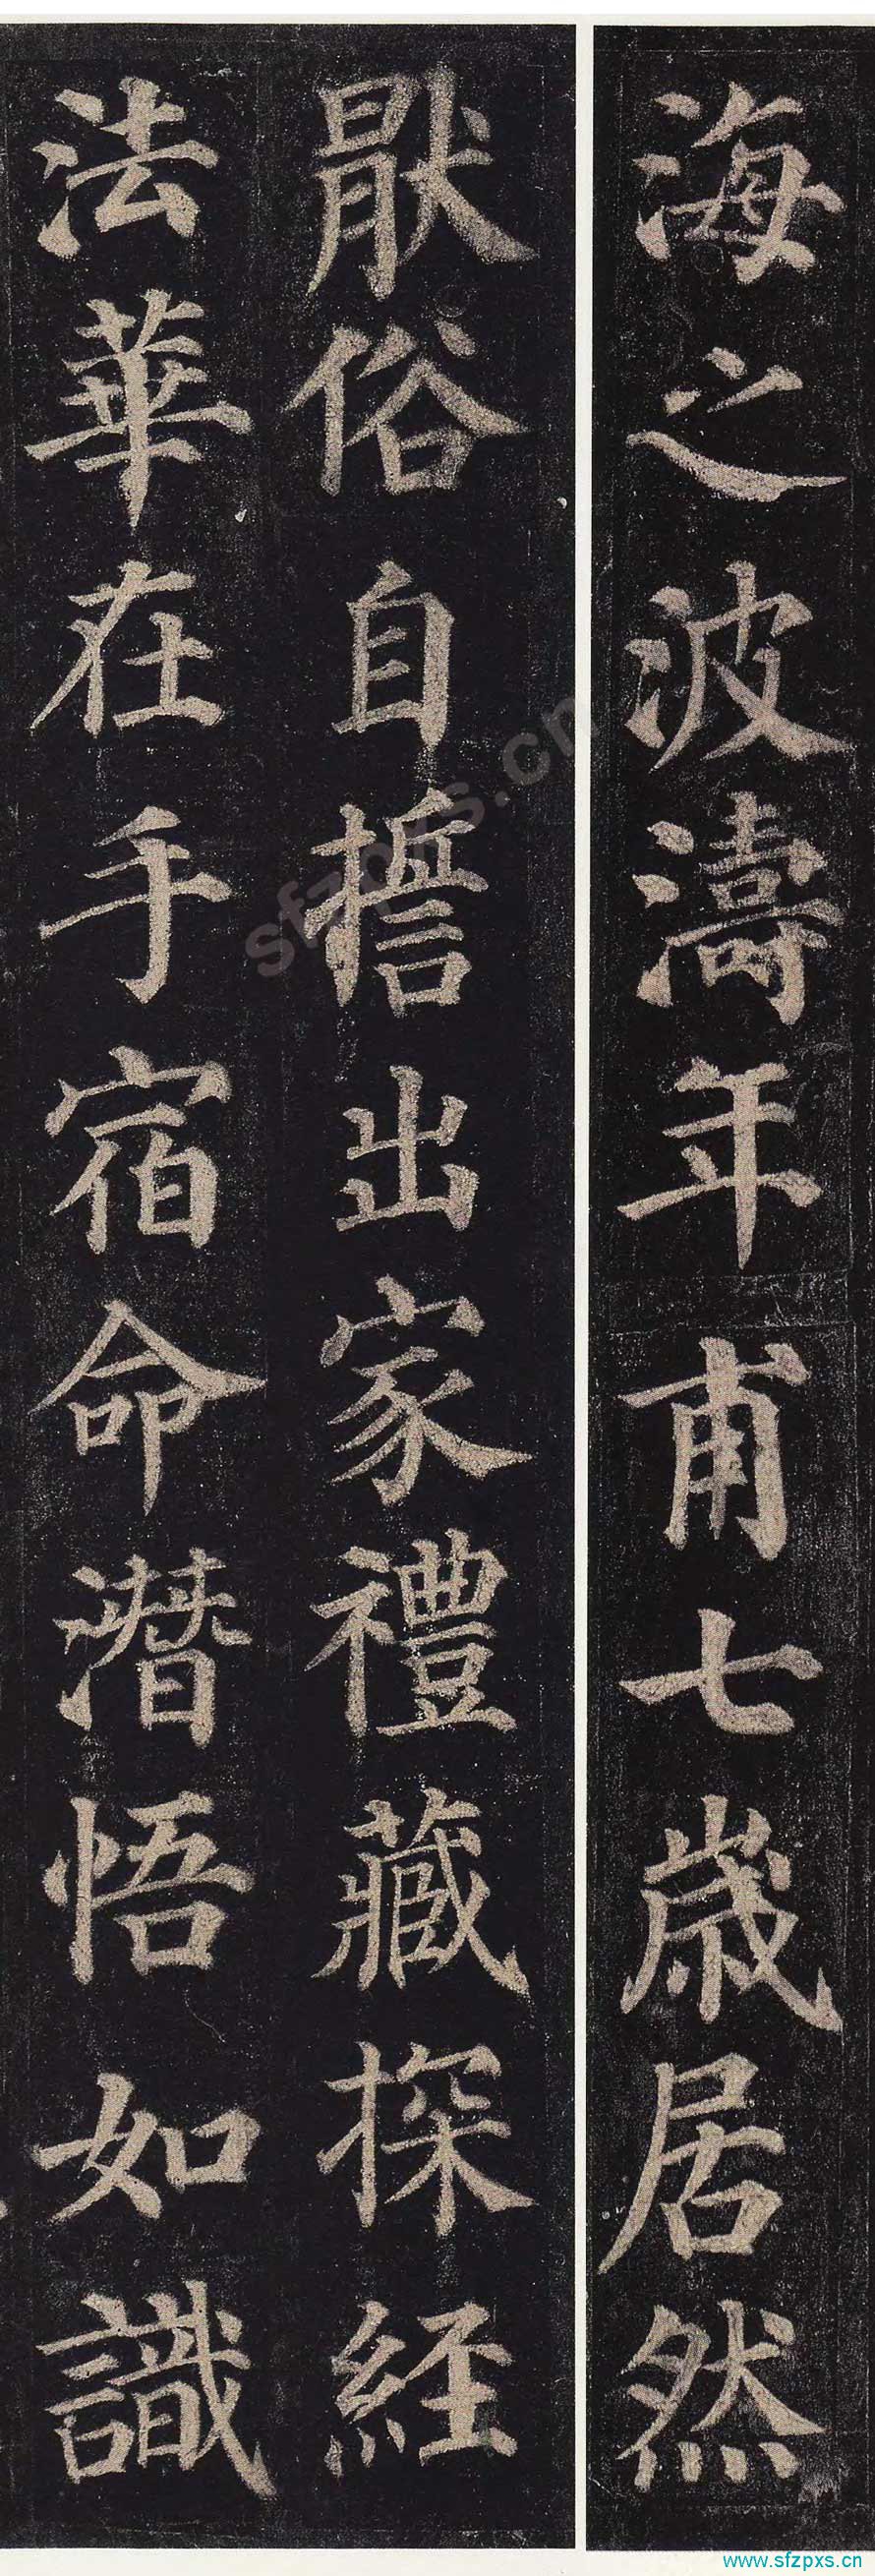 海之波濤年甫七歲居然
猒俗自誓出家禮藏探經
法華在手宿命潛悟如識
sfzpxs.cn
www.sfzpxs.cn